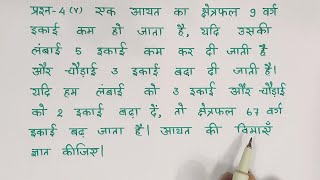 प्रश्न-4 (v) एक आयत का क्षेत्रफल 9 वर्ग
इकाई कम हो जाता है, यदि उसकी
लंबाई 5 इकाई कम कर दी जाती है
और चौड़ाई 3 इकाई बढ़ा दी जाती है।
यदि हम लंबाई को 3 इकाई और चौड़ाई
को 2 इकाई बढ़ा दें, तो क्षेत्रफल 67 वर्ग
इकाई बढ़ जाता है। आयत की विमाएँ
ज्ञात कीजिए।